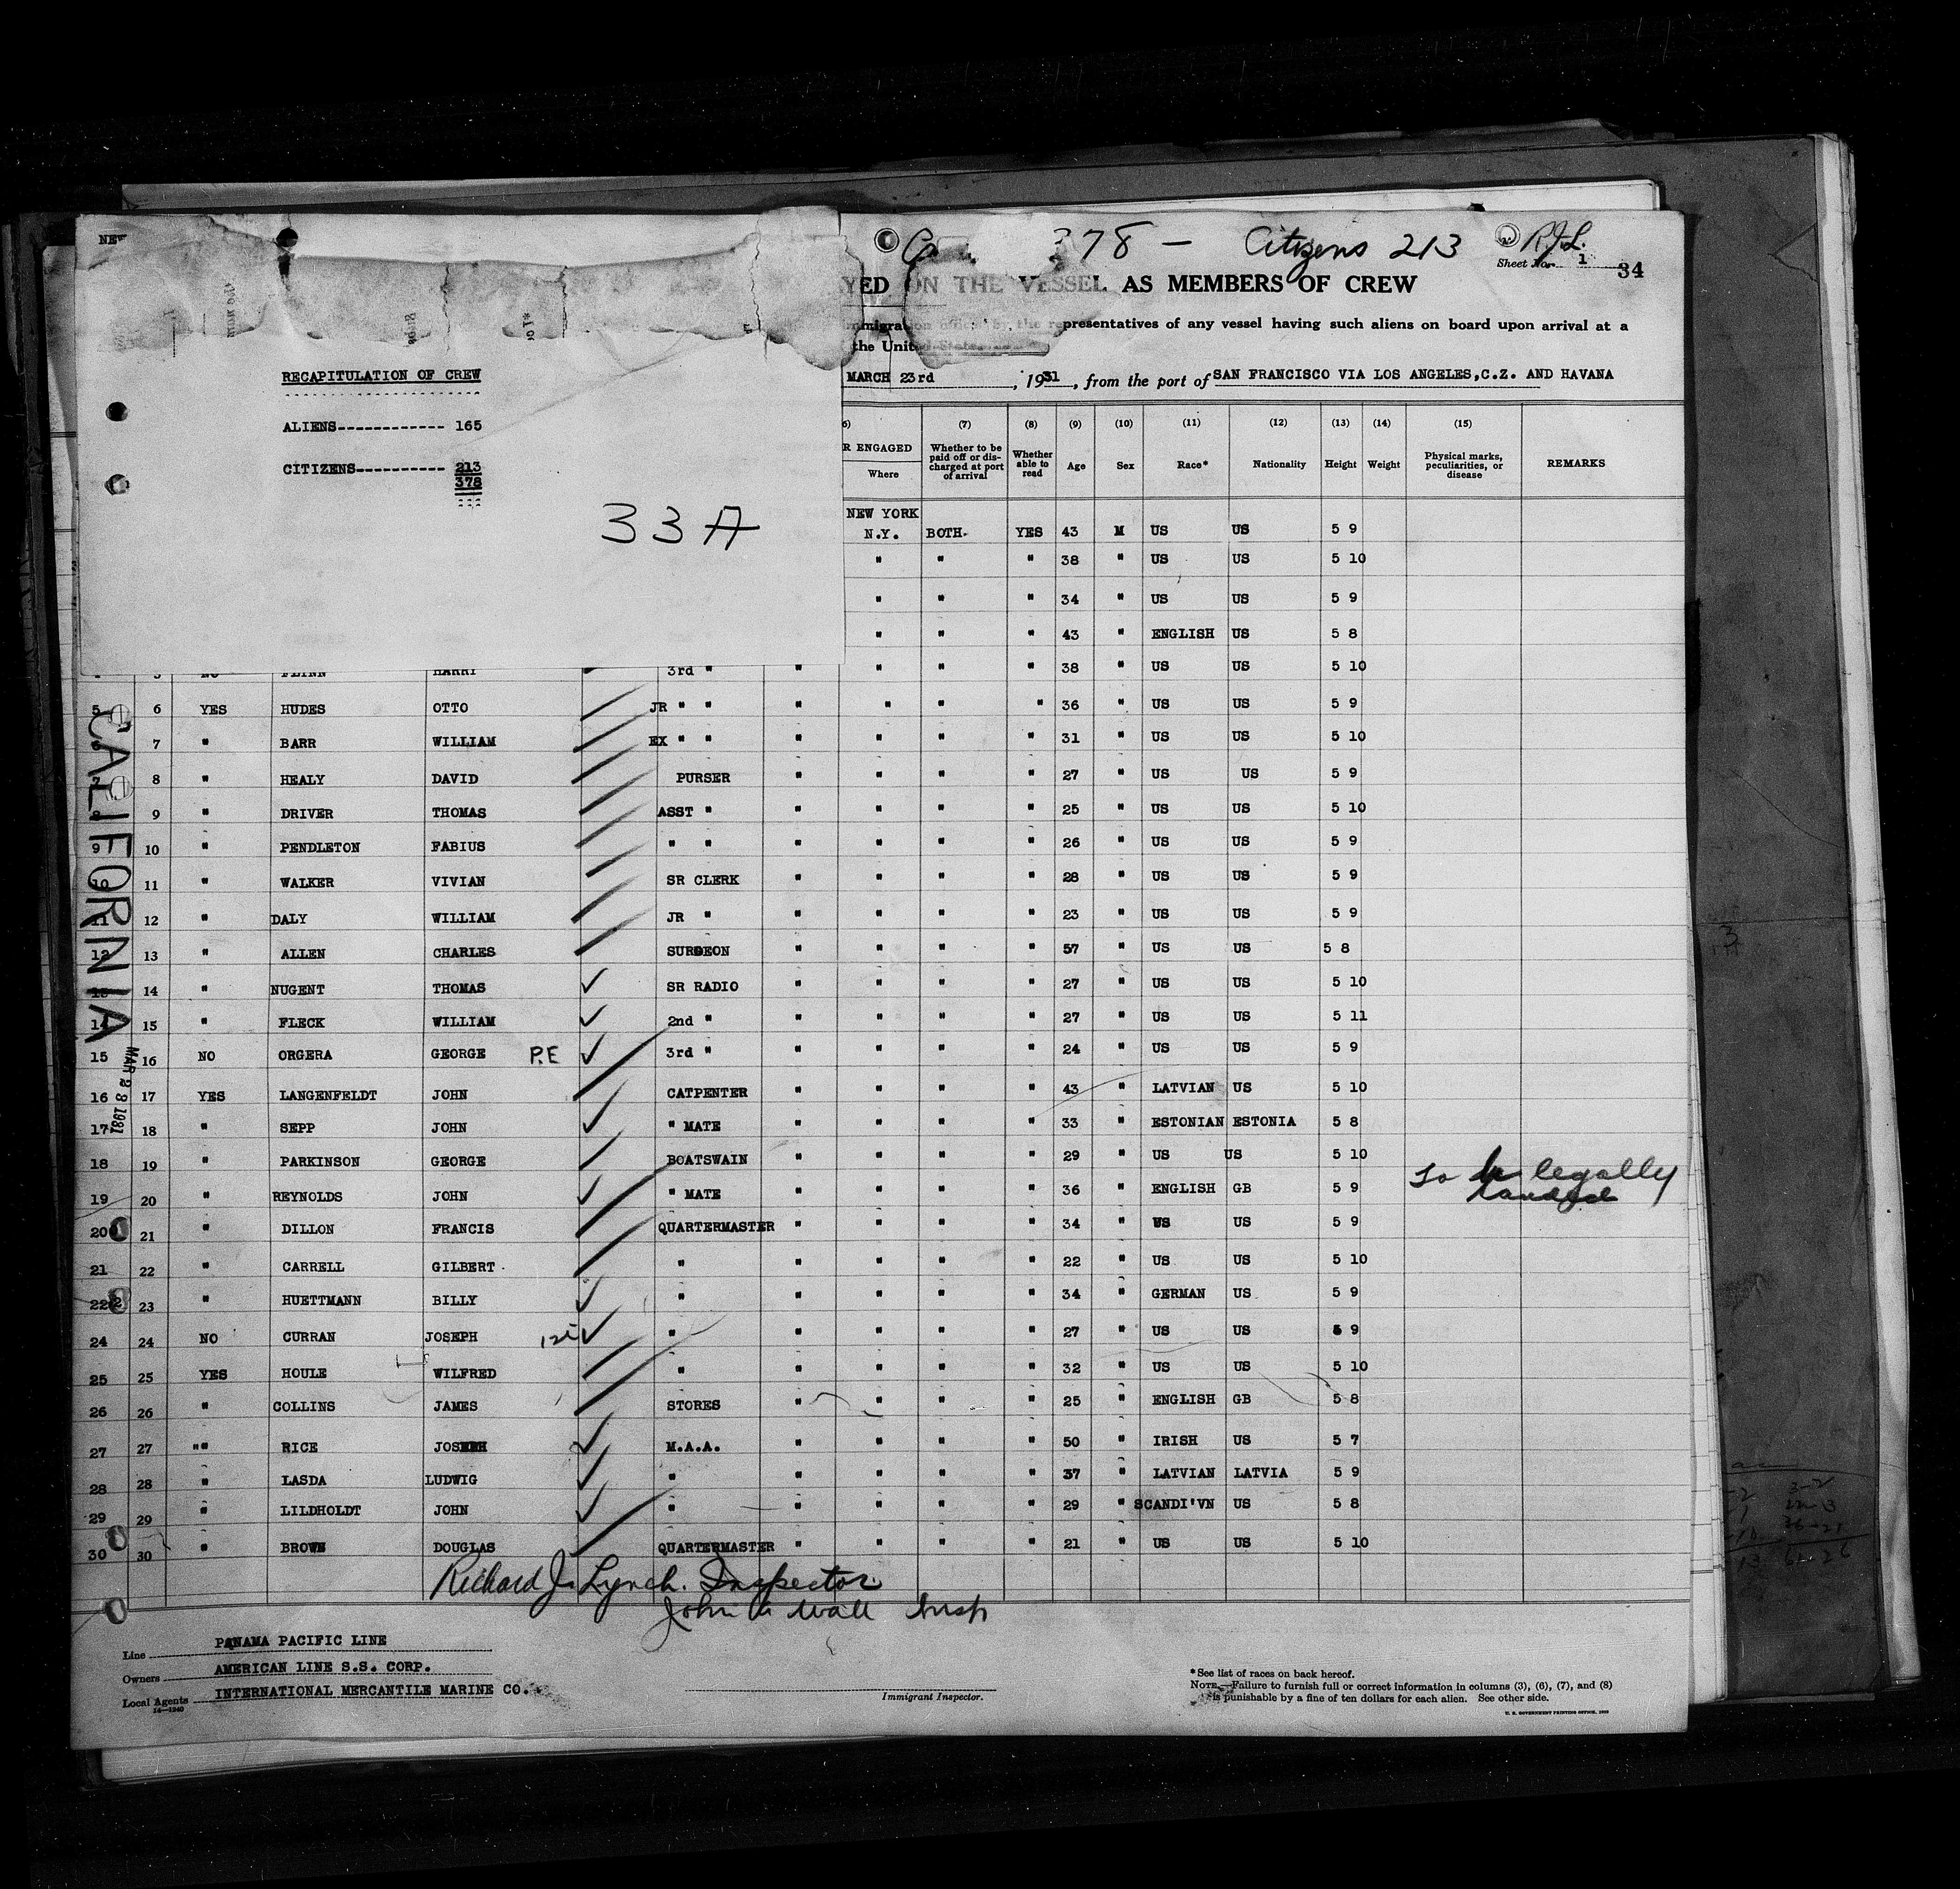 NEW
378 — Citizens 213 R.J.L.
Sheet No. 1 34
YED ON THE VESSEL AS MEMBERS OF CREW
representatives of any vessel having such aliens on board upon arrival at a
the Unit
MARCH 23rd, 1931, from the port of SAN FRANCISCO VIA LOS ANGELES,C.Z. AND HAVANA
RECAPITULATION OF CREW
ALIENS------------ 165
CITIZENS---------- 213
378
33A
(7) (8) (9) (10) (11) (12) (13) (14) (15)
R ENGAGED Where Whether to be paid off or discharged at port of arrival Whether able to read Age Sex Race* Nationality Height Weight Physical marks, peculiarities, or disease REMARKS
NEW YORK
N.Y. BOTH. YES 43 M US US 5 9
" " " 38 " US US 5 10
" " " 34 " US US 5 9
" " " 43 " ENGLISH US 5 8
5 NO FLINN HARRY 3rd " " " " " 38 " US US 5 10
5 6 YES HUDES OTTO JR " " " " " " 36 " US US 5 9
6 7 " BARR WILLIAM EX " " " " " " 31 " US US 5 10
7 8 " HEALY DAVID PURSER " " " " 27 " US US 5 9
8 9 " DRIVER THOMAS ASST " " " " " 25 " US US 5 10
9 10 " PENDLETON FABIUS " " " " " " 26 " US US 5 9
10 11 " WALKER VIVIAN SR CLERK " " " " 28 " US US 5 9
11 12 " DALY WILLIAM JR " " " " " 23 " US US 5 9
12 13 " ALLEN CHARLES SURGEON " " " " 57 " US US 5 8
13 14 " NUGENT THOMAS SR RADIO " " " " 27 " US US 5 10
14 15 " FLECK WILLIAM 2nd " " " " " 27 " US US 5 11
15 16 NO ORGERA GEORGE P.E 3rd " " " " " 24 " US US 5 9
16 17 YES LANGENFELDT JOHN CATPENTER " " " " 43 " LATVIAN US 5 10
17 18 " SEPP JOHN " MATE " " " " 33 " ESTONIAN ESTONIA 5 8
18 19 " PARKINSON GEORGE BOATSWAIN " " " " 29 " US US 5 10
19 20 " REYNOLDS JOHN " MATE " " " " 36 " ENGLISH GB 5 9 to be legally landed
20 21 " DILLON FRANCIS QUARTERMASTER " " " " 34 " US US 5 9
21 22 " CARRELL GILBERT " " " " " 22 " US US 5 10
22 23 " HUETTMANN BILLY " " " " " 34 " GERMAN US 5 9
24 24 NO CURRAN JOSEPH " " " " " 27 " US US 5 9
25 25 YES HOULE WILFRED " " " " " 32 " US US 5 10
26 26 " COLLINS JAMES STORES " " " " 25 " ENGLISH GB 5 8
27 27 "" RICE JOSEPH M.A.A. " " " " 50 " IRISH US 5 7
28 28 " LASDA LUDWIG " " " " " 37 " LATVIAN LATVIA 5 9
29 29 " LILDHOLDT JOHN " " " " " 29 " SCANDI'VN US 5 8
30 30 " BROWN DOUGLAS QUARTERMASTER " " " " 21 " US US 5 10
CALIFORNIA
MAR 23 1931
Richard J. Lynch. Inspector
John Wall Insp
Line PANAMA PACIFIC LINE
Owners AMERICAN LINE S.S. CORP.
Local Agents INTERNATIONAL MERCANTILE MARINE CO.
14—1240
Immigrant Inspector.
*See list of races on back hereof.
NOTE.—Failure to furnish full or correct information in columns (3), (6), (7), and (8)
is punishable by a fine of ten dollars for each alien. See other side.